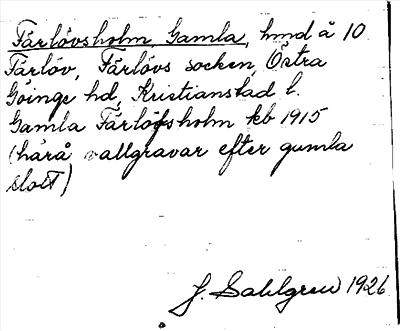 Färlövsholm, Gamla, hmd å 10
Färlöv, Färlövs socken, Östra
Göinge hd, Kristianstad l.
Gamla Färlöfsholm kb 1915
(härå vallgravar efter gamla
slott)
J. Sahlgren 1926